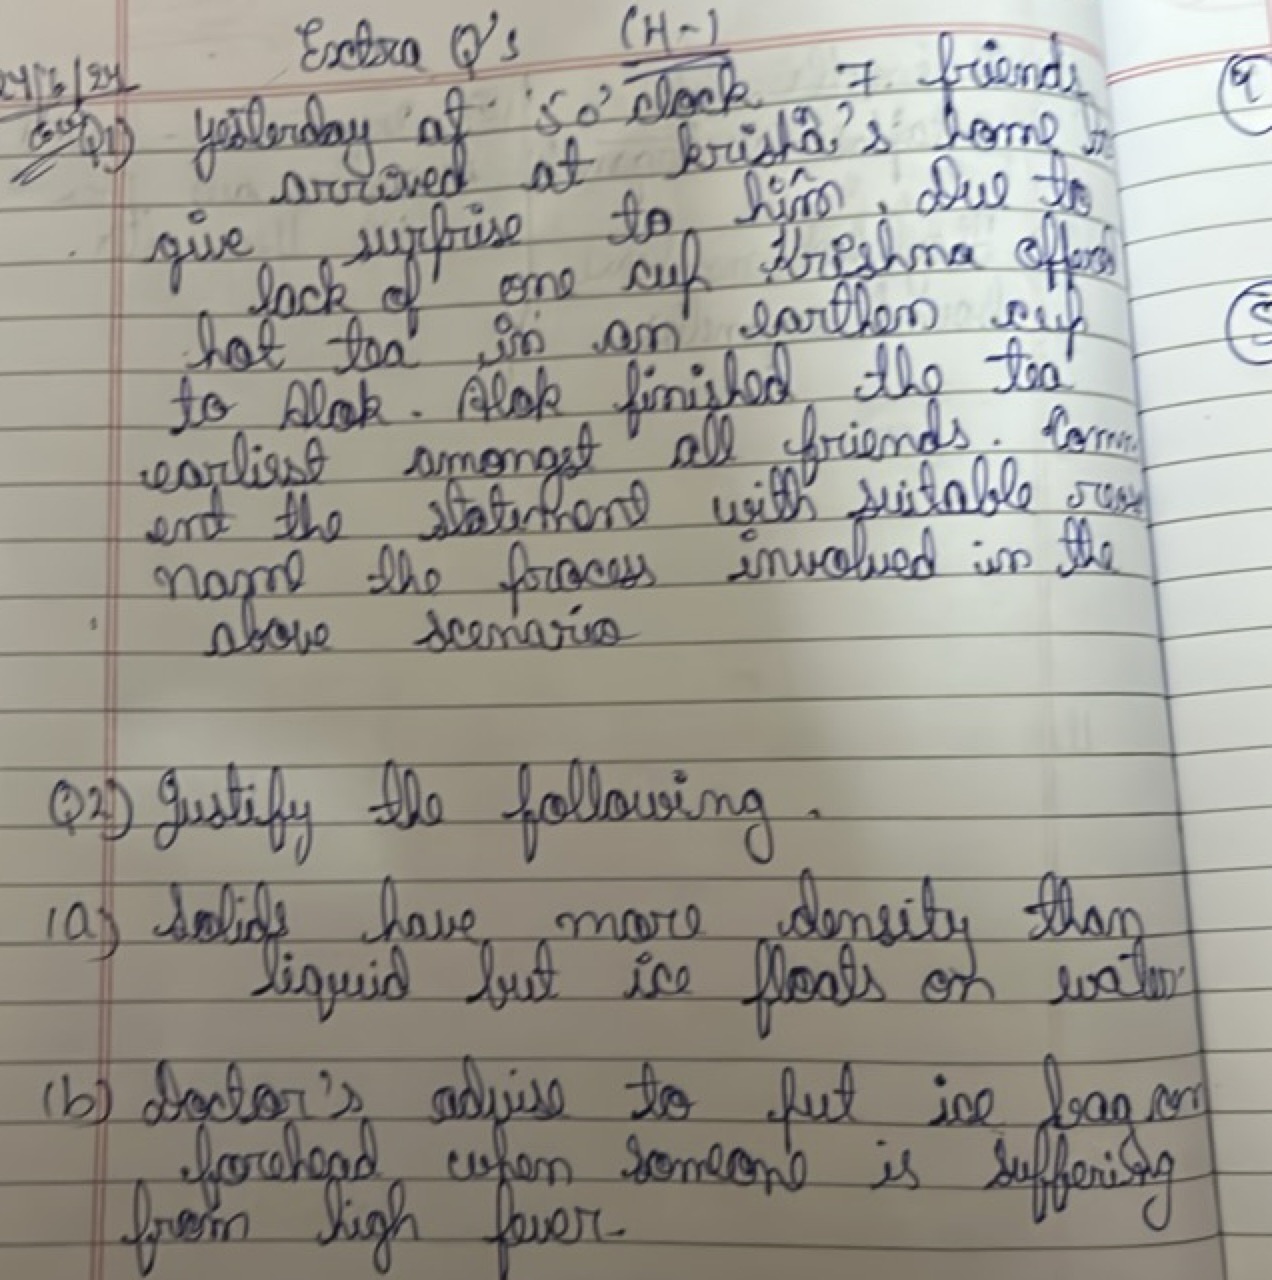 Extra Q's (H-1)
24/6/24
Q1) Yesterday at 5 o'clock 7 friends
arrived at krisha's home to
give surprise to him. Due to
lack of one cup Krishma offers
hot tea in an earthen cup
to Alok. Alok finished the tea
earliest amongst all friends. Comm
ent the statement with suitable reas
name the process involved in the
above scenario
Q2) Justify the following.
(a) Solids have more density than
liquid but ice floats on water
(b) Doctor's advise to put ice bag on
forehead when someone is suffering
from high fever.
4
5